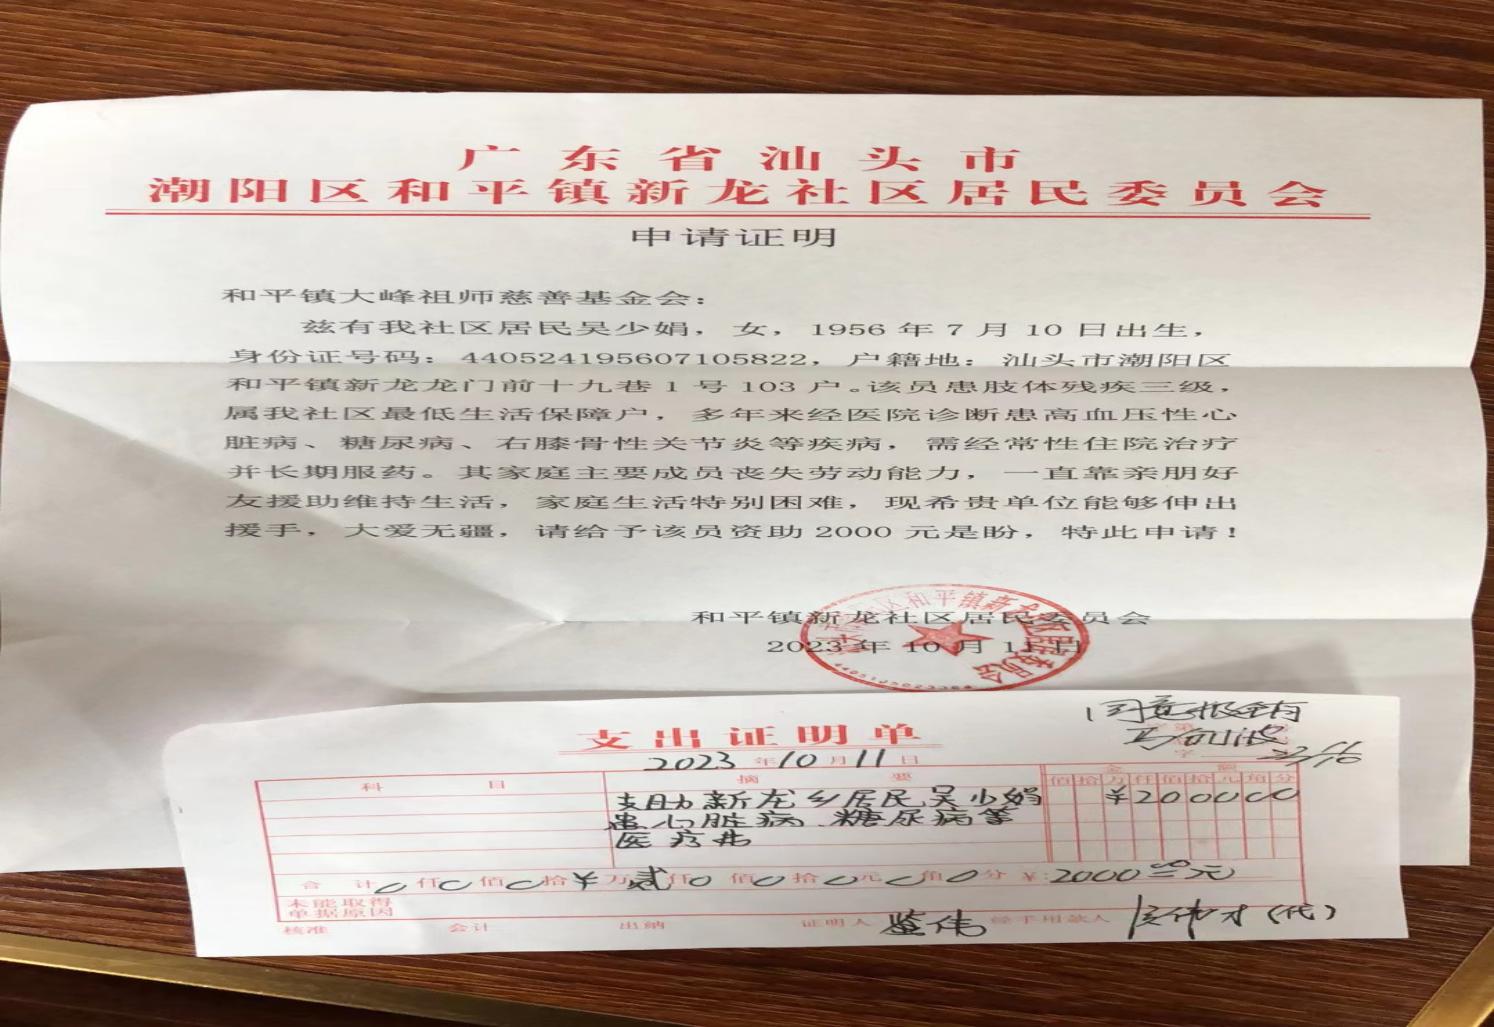 广东省汕头市
潮阳区和平镇新龙社区居民委员会
申请证明
和平镇大峰祖师慈善基金会：
兹有我社区居民吴少娟，女，1956年7月10日出生，
身份证号码：440524195607105822，户籍地：汕头市潮阳区
和平镇新龙龙门前十九巷1号103户。该员患肢体残疾三级，
属我社区最低生活保障户，多年来经医院诊断患高血压性心
脏病、糖尿病、右膝骨性关节炎等疾病，需经常性住院治疗
并长期服药。其家庭主要成员丧失劳动能力，一直靠亲朋好
友援助维持生活，家庭生活特别困难，现希贵单位能够伸出
援手，大爱无疆，请给予该员资助2000元是盼，特此申请！
和平镇新龙社区居民委员会
2023年10月11日
同意报销
支出证明单
2023年10月11日
科目 摘要 金额
佰拾万仟佰拾元角分
支助新龙乡居民吴少娟 ¥200000
患心脏病、糖尿病等
医疗费
合计0仟0佰0拾¥万贰仟0佰0拾0元0角0分 ¥:2000元
未能取得
单据原因
核准 会计 出纳 证明人 经手用款人 (代)